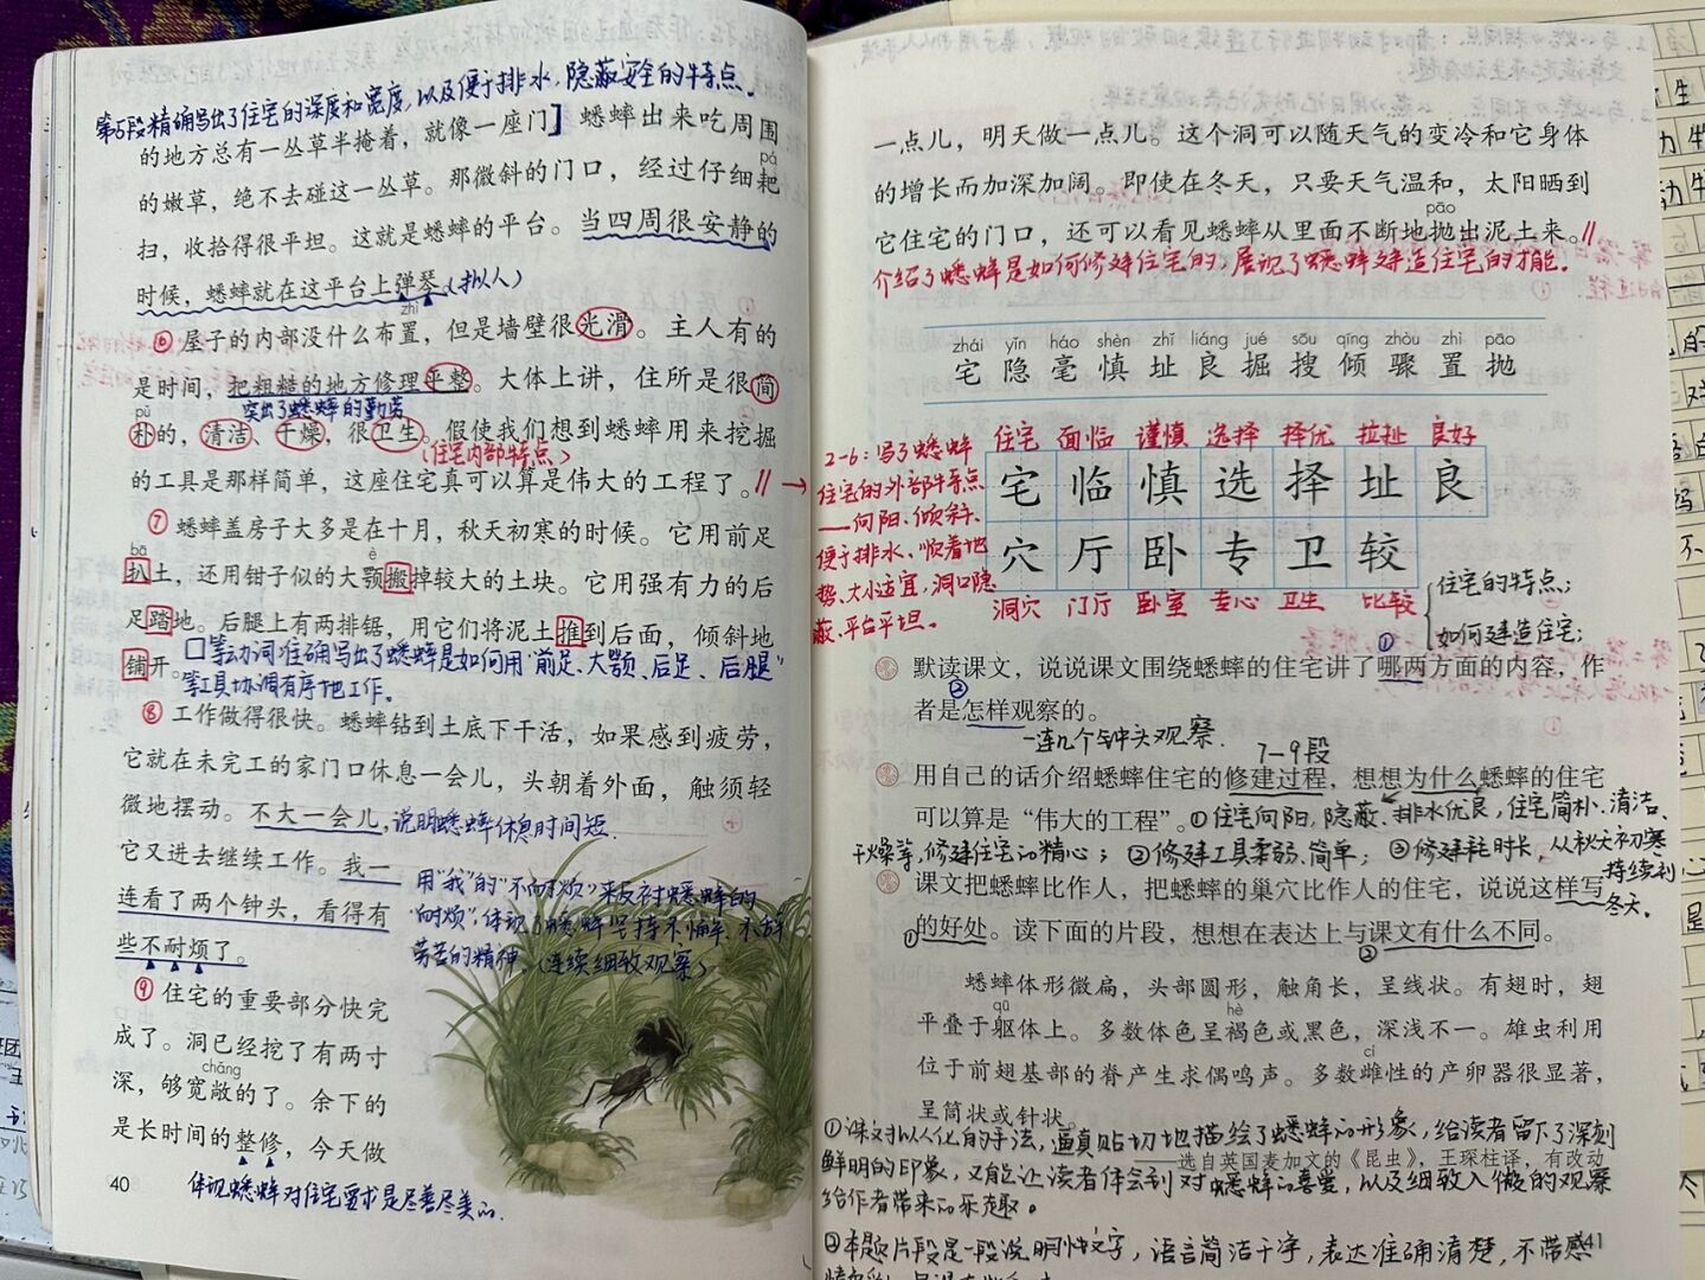 第5段精确写出了住宅的深度和宽度,以及便于排水,隐蔽安全的特点。
的地方总有一丛草半掩着，就像一座门】蟋蟀出来吃周围
pá
的嫩草，绝不去碰这一丛草。那微斜的门口，经过仔细耙
扫，收拾得很平坦。这就是蟋蟀的平台。当四周很安静的
时候，蟋蟀就在这平台上弹琴。(拟人)
zhì
⑥屋子的内部没什么布置，但是墙壁很光滑。主人有的
是时间，把粗糙的地方修理平整。大体上讲，住所是很简
突出了蟋蟀的勤劳
pǔ
朴的，清洁、干燥，很卫生。假使我们想到蟋蟀用来挖掘
(住宅内部特点)
的工具是那样简单，这座住宅真可以算是伟大的工程了。//→
⑦蟋蟀盖房子大多是在十月，秋天初寒的时候。它用前足
bā è
扒土，还用钳子似的大颚搬掉较大的土块。它用强有力的后
足踏地。后腿上有两排锯，用它们将泥土推到后面，倾斜地
铺开。
□等动词准确写出了蟋蟀是如何用"前足、大颚、后足、后腿"
等工具协调有序地工作。
⑧工作做得很快。蟋蟀钻到土底下干活，如果感到疲劳，
它就在未完工的家门口休息一会儿，头朝着外面，触须轻
微地摆动。不大一会儿，说明蟋蟀休息时间短.
它又进去继续工作。我一
连看了两个钟头，看得有
些不耐烦了。
用"我"的"不耐烦"来反衬蟋蟀的
"耐烦",体现了蟋蟀坚持不懈、不辞
劳苦的精神。(连续细致观察)
⑨住宅的重要部分快完
成了。洞已经挖了有两寸
chǎng
深，够宽敞的了。余下的
是长时间的整修，今天做
40
体现蟋蟀对住宅要求是尽善尽美的.
一点儿，明天做一点儿。这个洞可以随天气的变冷和它身体
的增长而加深加阔。即使在冬天，只要天气温和，太阳晒到
pāo
它住宅的门口，还可以看见蟋蟀从里面不断地抛出泥土来。//
介绍了蟋蟀是如何修建住宅的,展现了蟋蟀建造住宅的才能。
zhái yǐn háo shèn zhǐ liáng jué sōu qīng zhòu zhì pāo
宅 隐 毫 慎 址 良 掘 搜 倾 骤 置 抛
2-6:写了蟋蟀
住宅的外部特点
——向阳、倾斜、
便于排水、顺着地
势、大小适宜,洞口隐
蔽、平台平坦。
住宅 面临 谨慎 选择 择优 良好
宅 临 慎 选 择 址 良
穴 厅 卧 专 卫 较
洞穴 门厅 卧室 专心 卫生 比较
住宅的特点;
如何建造住宅;
①
默读课文，说说课文围绕蟋蟀的住宅讲了哪两方面的内容，作
②
者是怎样观察的。
一连几个钟头观察.
7-9段
用自己的话介绍蟋蟀住宅的修建过程，想想为什么蟋蟀的住宅
可以算是“伟大的工程”。①住宅向阳,隐蔽、排水优良,住宅简朴、清洁、
干燥等,修建住宅的精心;②修建工具柔弱、简单;③修建耗时长,从秋天初寒
持续到
冬天。
课文把蟋蟀比作人，把蟋蟀的巢穴比作人的住宅，说说这样写
①的好处。读下面的片段，想想在表达上与课文有什么不同。
②
蟋蟀体形微扁，头部圆形，触角长，呈线状。有翅时，翅
qū hè
平叠于躯体上。多数体色呈褐色或黑色，深浅不一。雄虫利用
cí
位于前翅基部的脊产生求偶鸣声。多数雌性的产卵器很显著，
呈筒状或针状。
①课文拟人化的手法,逼真贴切地描绘了蟋蟀的形象,给读者留下了深刻
——选自英国麦加文的《昆虫》，王琛柱译，有改动
鲜明的印象,又能让读者体会到对蟋蟀的喜爱,以及细致入微的观察
给作者带来的乐趣。
②本题片段是一段说明性文字,语言简洁干净,表达准确清楚,不带感
41